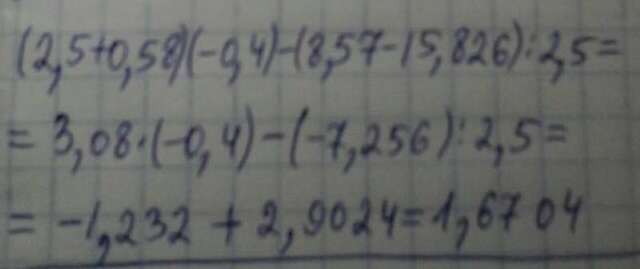 (2,5+0,58)(-0,4)-(8,57-15,826):2,5=
= 3,08·(-0,4)-(-7,256):2,5=
= -1,232 + 2,9024=1,6704